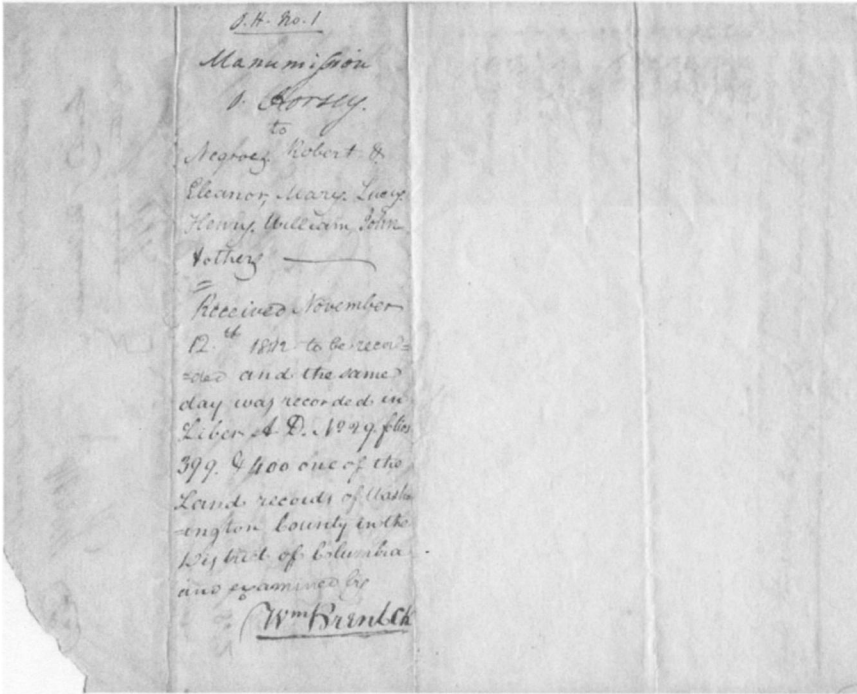 O. H. No. 1
Manumission
to
Negroes Robert &
Eleanor, Mary, Lucy,
Henry, William, John
& others
Received November
12.th 1812 to be recor=
=ded and the same
day was recorded in
Liber A D. No 29. folios
399. & 400 one of the
Land records of Wash
=ington County in the
District of Columbia
and examined by
Wm Brent Ck